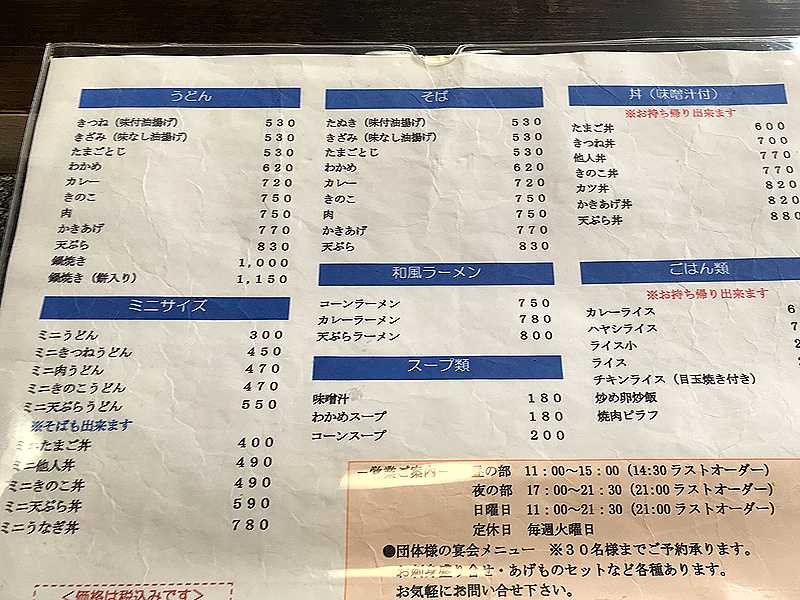 うどん
きつね（味付油揚げ） 530
きざみ（味なし油揚げ） 530
たまごとじ 530
わかめ 620
カレー 720
きのこ 750
肉 750
かきあげ 770
天ぷら 830
鍋焼き 1,000
鍋焼き（餅入り） 1,150
ミニサイズ
ミニうどん 300
ミニきつねうどん 450
ミニ肉うどん 470
ミニきのこうどん 470
ミニ天ぷらうどん 550
※そばも出来ます
ミニたまご丼 400
ミニ他人丼 490
ミニきのこ丼 490
ミニ天ぷら丼 590
ミニうなぎ丼 780
＜価格は税込みです＞
そば
たぬき（味付油揚げ） 530
きざみ（味なし油揚げ） 530
たまごとじ 530
わかめ 620
カレー 720
きのこ 750
肉 750
かきあげ 770
天ぷら 830
和風ラーメン
コーンラーメン 750
カレーラーメン 780
天ぷらラーメン 800
スープ類
味噌汁 180
わかめスープ 180
コーンスープ 200
丼（味噌汁付）
※お持ち帰り出来ます
たまご丼 600
きつね丼 700
他人丼 770
きのこ丼 770
カツ丼 820
かきあげ丼 820
天ぷら丼 880
ごはん類
※お持ち帰り出来ます
カレーライス 6
ハヤシライス 7
ライス小 2
ライス
チキンライス（目玉焼き付き）
炒め卵炒飯
焼肉ピラフ
－営業ご案内－ 昼の部 11：00～15：00（14:30 ラストオーダー）
夜の部 17：00～21：30（21:00 ラストオーダー）
日曜日 11：00～21：30（21:00 ラストオーダー）
定休日 毎週火曜日
●団体様の宴会メニュー ※３０名様までご予約承ります。
お刺身盛り合せ・あげものセットなど各種あります。
お気軽にお問い合せ下さい。